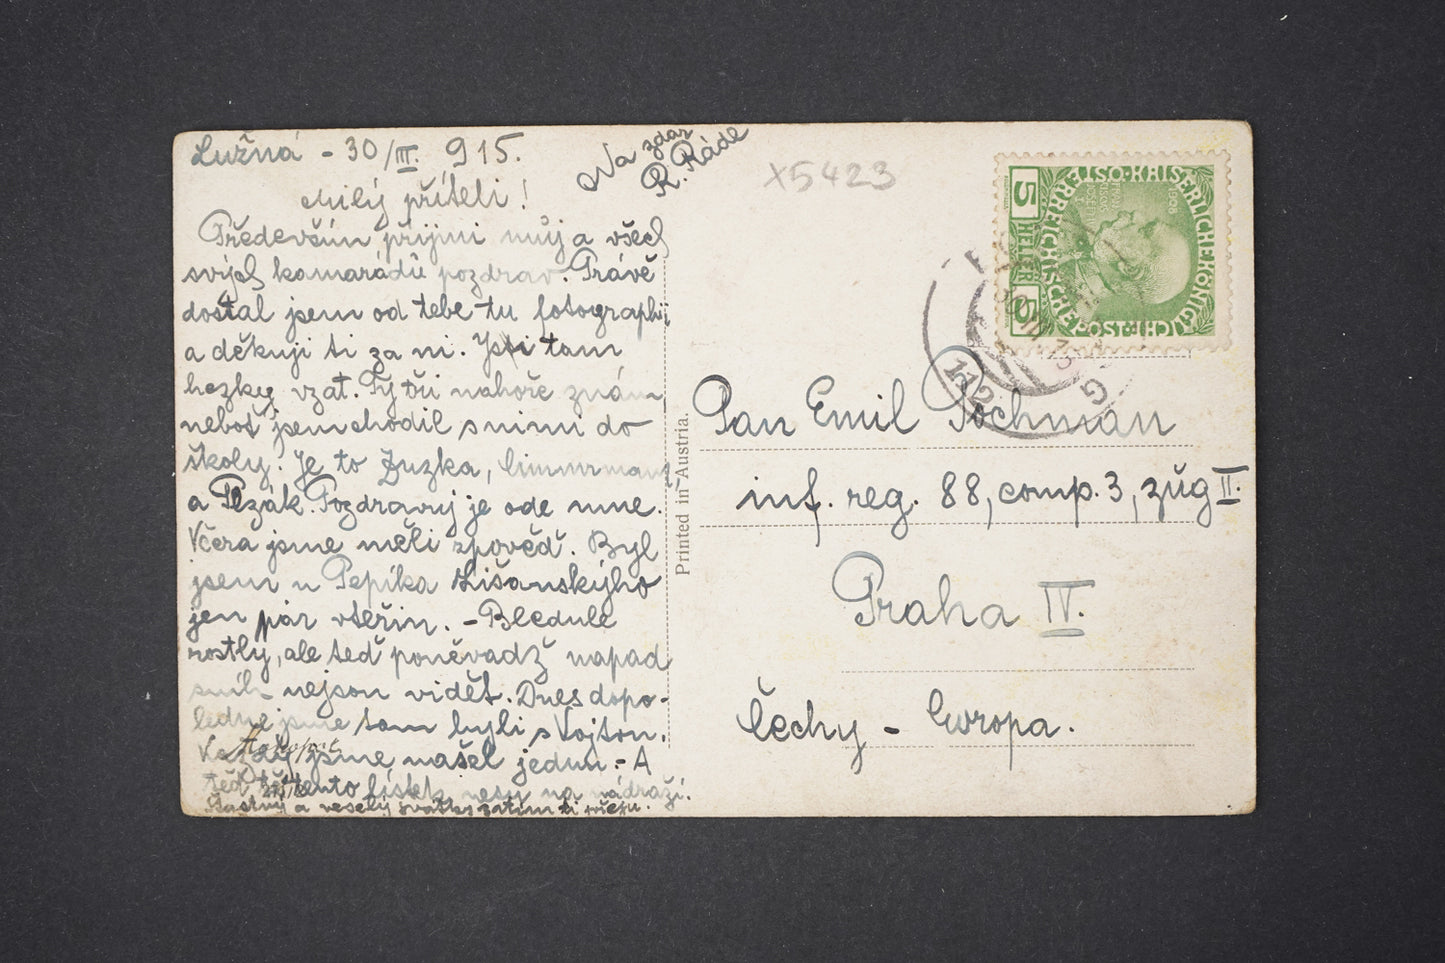 Lužná - 30/III. 915.
Milý příteli!
Především přijmi můj a všech
svých kamarádů pozdrav. Právě
dostal jsem od tebe tu fotografii
a děkuji ti za ni. Jsi tam
hezky vzat. Ty tři nahoře znám
neboť jsem chodil s nimi do
školy. Je to Zuzka,
a Pezák. Pozdravuj je ode mne.
Včera jsme měli zpověď. Byl
jsem u Pepíka Lišanskýho
jen pár vteřin. - Bledule
rostly, ale teď poněvadž napad
sníh nejsou vidět. Dnes dopo-
ledne jsme tam byli s Vojtou.
Každý jsme našel jednu. - A
teď tento lístek nesu na nádraží.
Šťastný a veselý svátky zatím ti přeju.
Na zdar
R. Ráde
X5423
Printed in Austria.
5 HELLER 5
KAISERLICHE KÖNIGLICHE ÖSTERREICHISCHE POST
1908
Pan Emil Pochman
inf. reg. 88, comp. 3, zůg II.
Praha IV.
Čechy - Evropa.